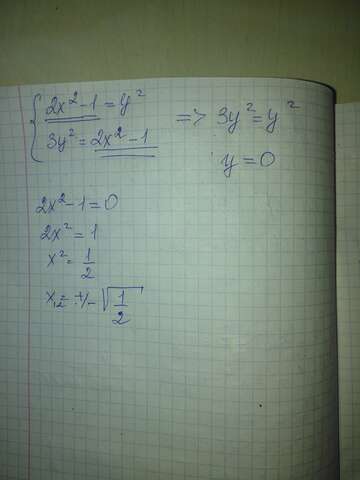 { 2x²-1 = y²
3y² = 2x²-1
=> 3y² = y²
y = 0
2x²-1 = 0
2x² = 1
x² = 1/2
x₁,₂ = +/- √(1/2)